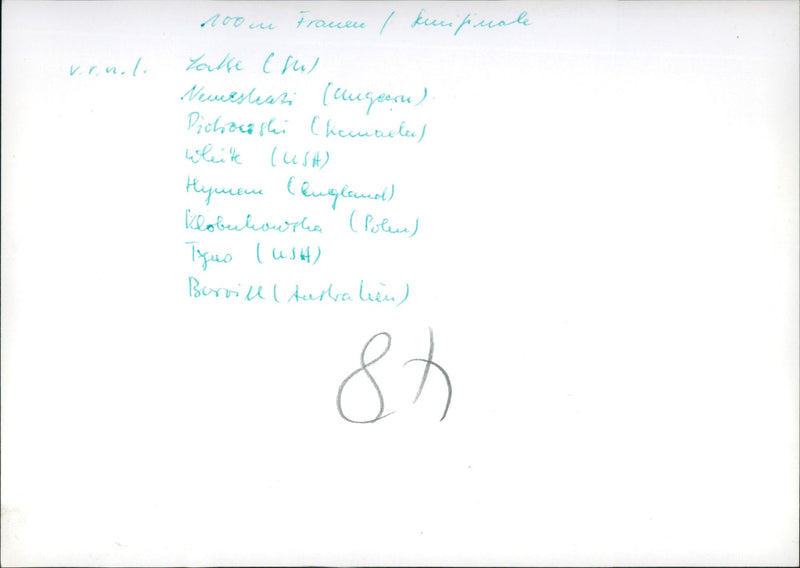 100m Frauen / Semifinale
v.r.n.l. Latse (SU)
Nemeshazi (Ungarn)
Piotrowski (Kanada)
White (USA)
Hyman (England)
Klobukowska (Polen)
Tyus (USA)
Burvill (Australien)